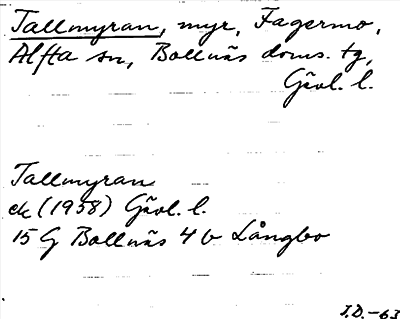 Tallmyran, myr, Fagermo,
Alfta sn, Bollnäs doms. tg,
Gävl. l.
Tallmyran
ek (1958) Gävl. l.
15 G Bollnäs 4 b Långbo
I.D.-63